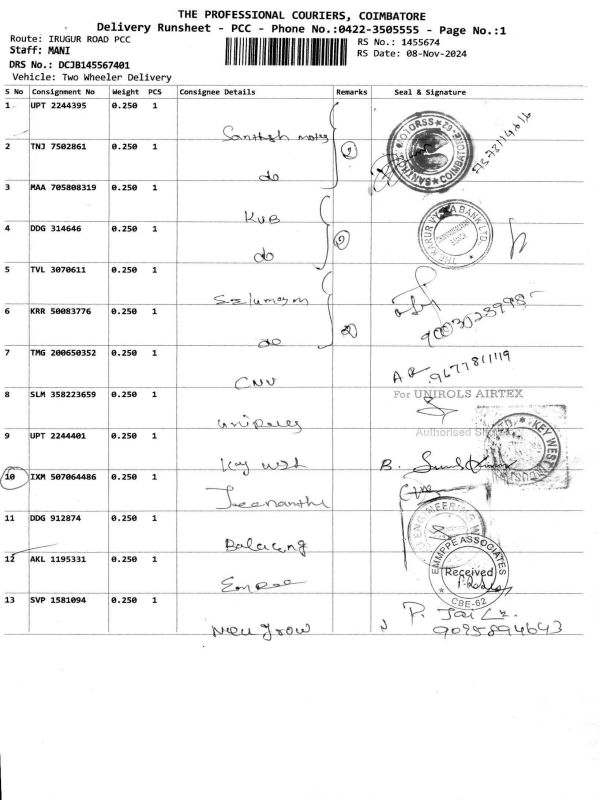 THE PROFESSIONAL COURIERS, COIMBATORE
Delivery Runsheet - PCC - Phone No.:0422-3505555 - Page No.:1
Route: IRUGUR ROAD PCC
RS No.: 1455674
Staff: MANI
RS Date: 08-Nov-2024
DRS No.: DCJB145567401
Vehicle: Two Wheeler Delivery
S No Consignment No Weight PCS Consignee Details Remarks Seal & Signature
1 UPT 2244395 0.250 1 Santhosh motors
2 TNJ 7502861 0.250 1 do
3 MAA 705808319 0.250 1 KUB
THE KARUR VYSYA BANK LTD.
4 DDG 314646 0.250 1 do
5 TVL 3070611 0.250 1
6 KRR 50083776 0.250 1 do
9003028998
7 TMG 200650352 0.250 1 CNU
9677811119
For UNIROLS AIRTEX
8 SLM 358223659 0.250 1
Authorised
9 UPT 2244401 0.250 1 Key west
KEY WEST
B.
10 IXM 507064486 0.250 1
ENGINEERING
11 DDG 912874 0.250 1 Balaeeng
EMMPPE ASSOCIATES
Received
CBE-62
12 AKL 1195331 0.250 1
13 SVP 1581094 0.250 1 New grow
P. Jai
9095894643